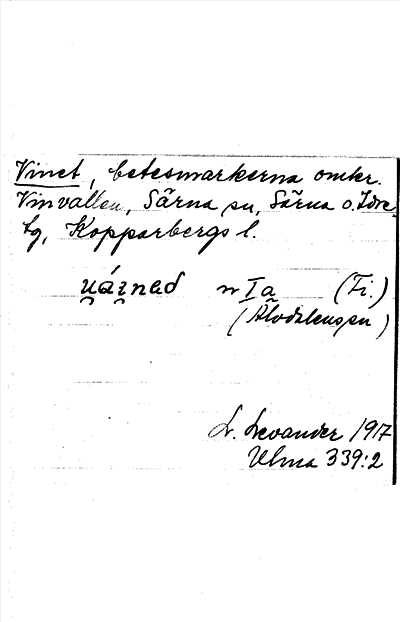 Vinet, betesmarkerna omkr.
Vinvallen, Särna sn, Särna o. Idre
tg, Kopparbergs l.
u̯ái̯nað n Ia (Fi.)
(Älvdalens sn)
L. Levander 1917
Ulma 339:2